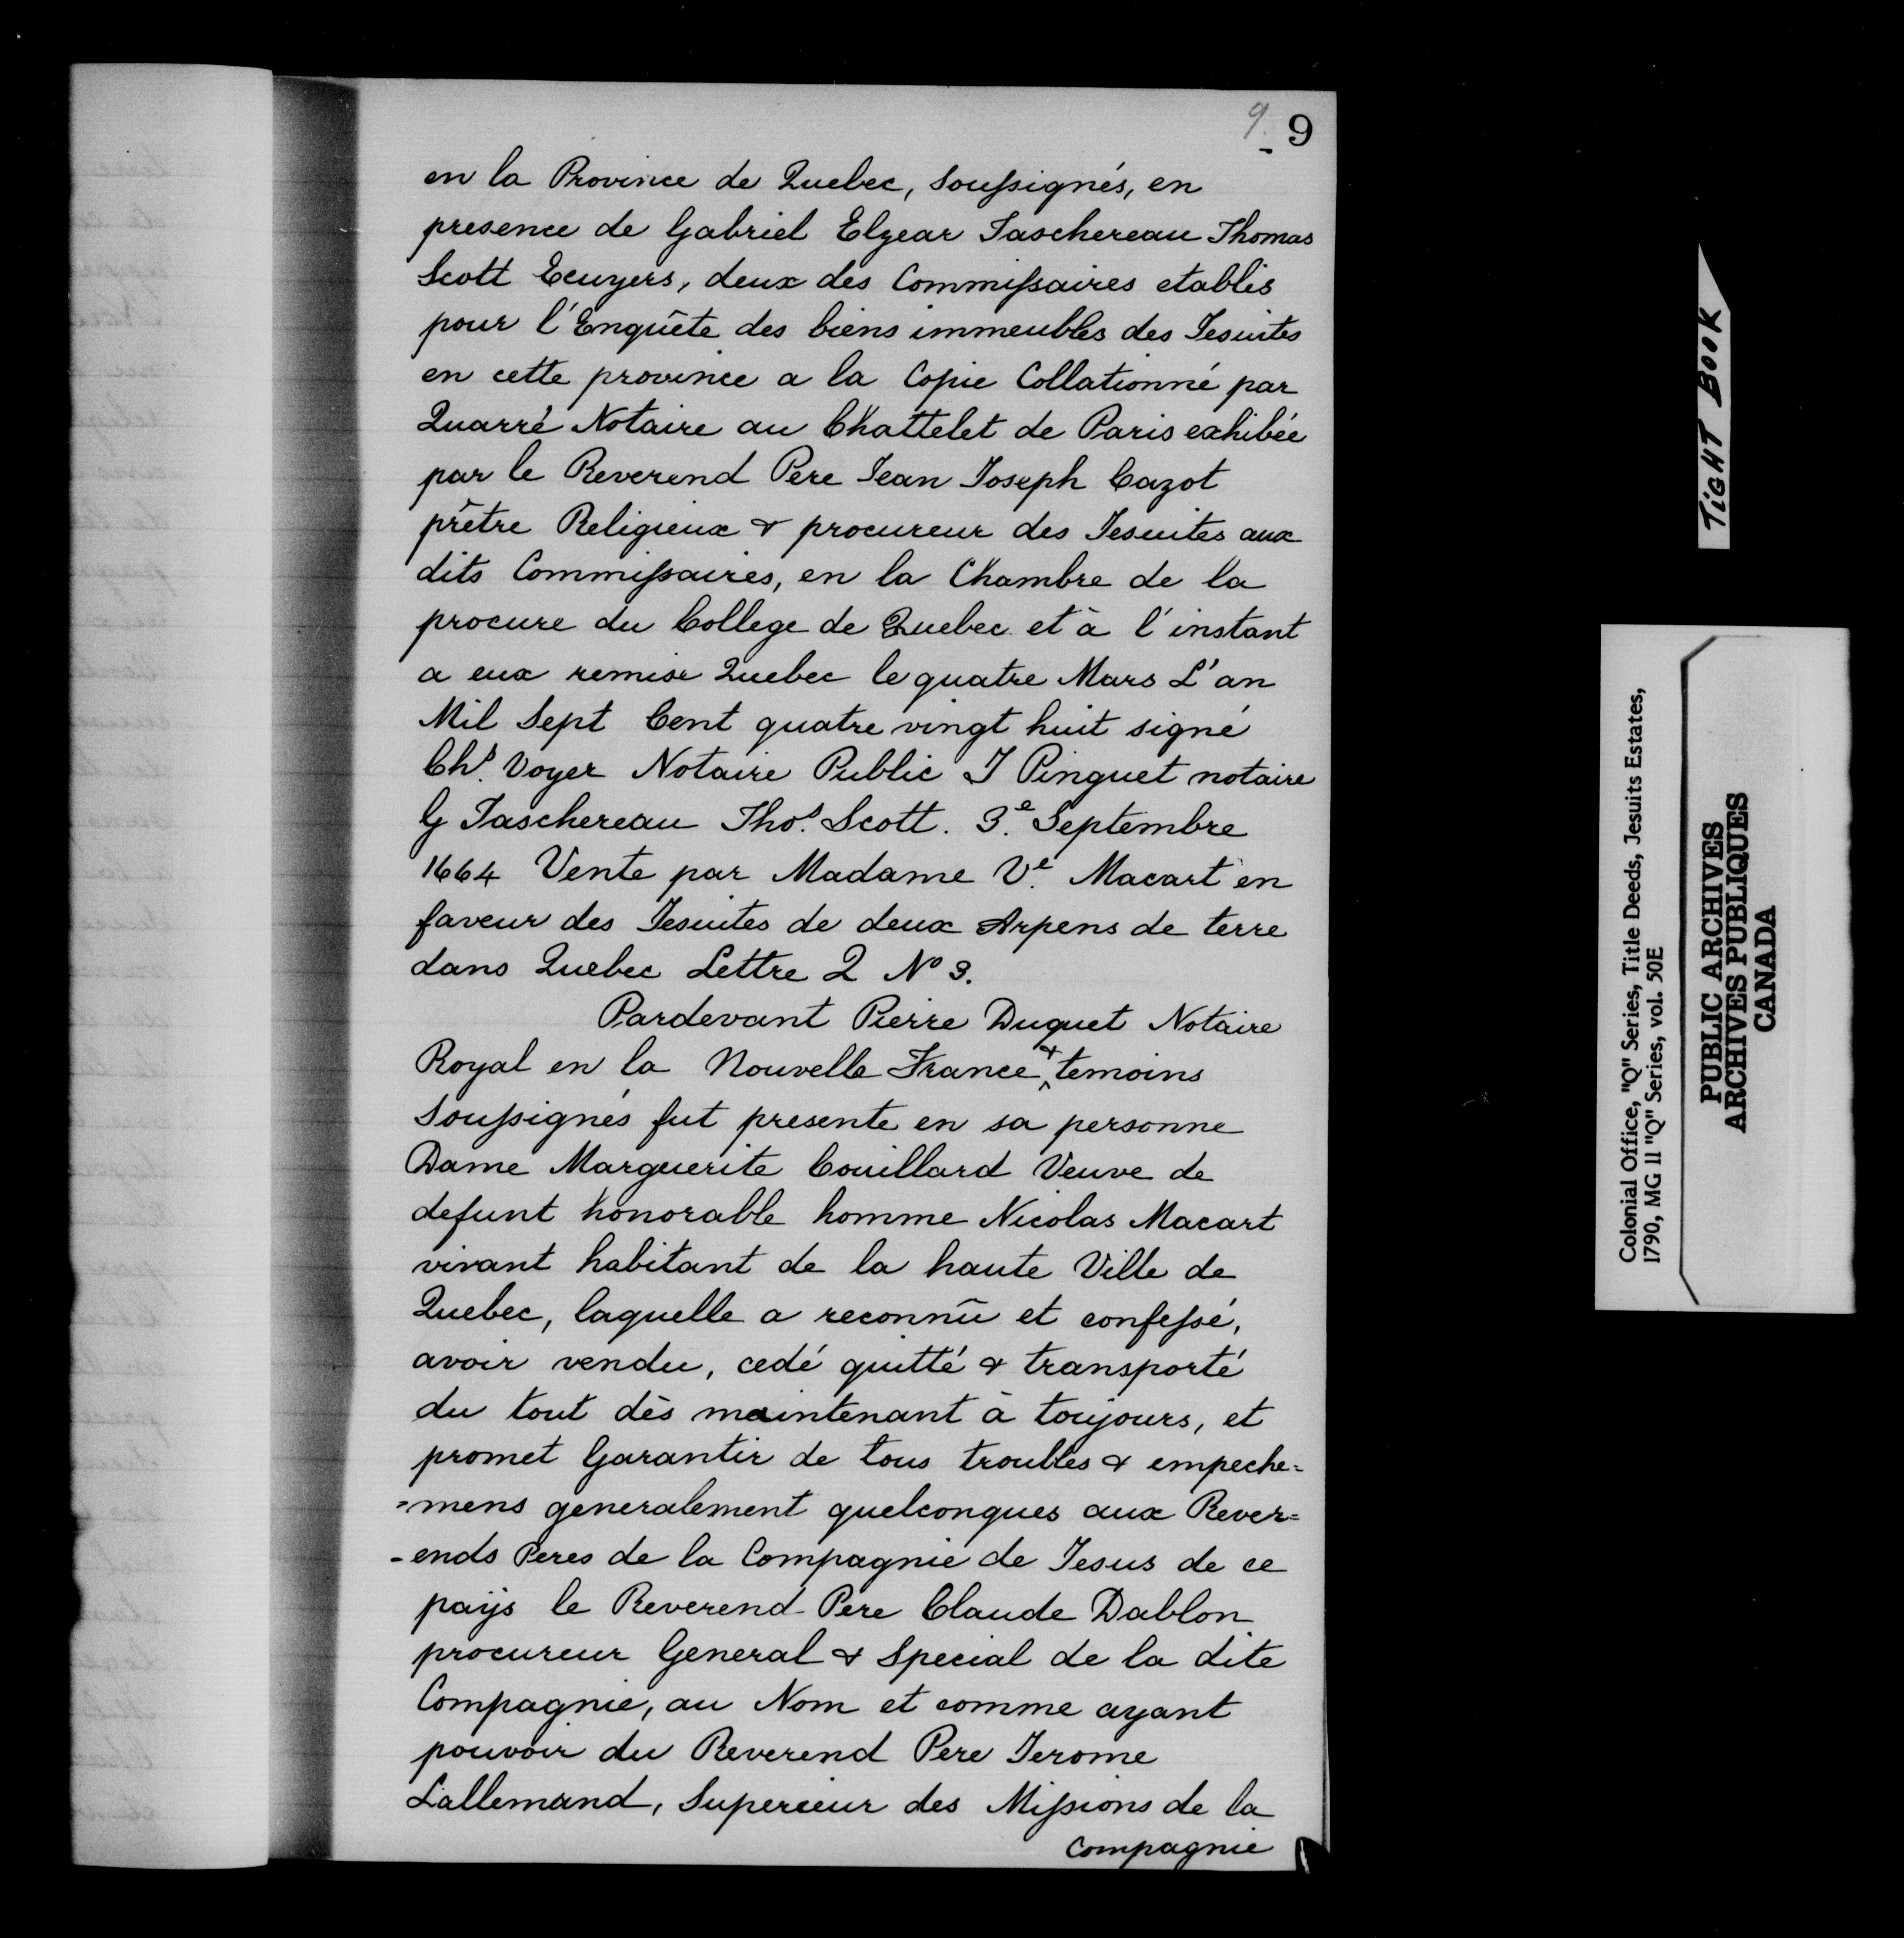 9. 9
en la Province de Quebec, Soussignés, en
presence de Gabriel Elzear Taschereau Thomas
Scott Ecuyers, deux des Commissaires etablis
pour l'Enquête des biens immeubles des Jesuites
en cette province a la Copie Collationné par
Quarré Notaire au Chattelet de Paris exhibée
par le Reverend Pere Jean Joseph Cazot
prêtre Religieux & procureur des Jesuites aux
dits Commissaires, en la Chambre de la
procure du College de Quebec et à l'instant
a eux remise Quebec le quatre Mars L'an
Mil Sept Cent quatre vingt huit signé
Chs. Voyer Notaire Public J Pinguet notaire
G Taschereau Thos. Scott. 3e. Septembre
1664 Vente par Madame Ve. Macart en
faveur des Jesuites de deux Arpens de terre
dans Quebec Lettre Q No 3.
Pardevant Pierre Duquet Notaire
Royal en la Nouvelle France, & temoins
Soussignés fut presente en sa personne
Dame Marguerite Couillard Veuve de
defunt honorable homme Nicolas Macart
vivant habitant de la haute Ville de
Quebec, laquelle a reconnû et confessé,
avoir vendu, cedé quitté & transporté
du tout dès maintenant à toujours, et
promet Garantir de tous troubles & empeche=
=mens generalement quelconques aux Rever=
-ends Peres de la Compagnie de Jesus de ce
païjs le Reverend Pere Claude Dablon
procureur General & Special de la dite
Compagnie, au Nom et comme ayant
pouvoir du Reverend Pere Jerome
Lallemand, Superieur des Missions de la
Compagnie
TIGHT BOOK
Colonial Office, "Q" Series, Title Deeds, Jesuits Estates,
1790, MG 11 "Q" Series, vol. 50E
PUBLIC ARCHIVES
ARCHIVES PUBLIQUES
CANADA